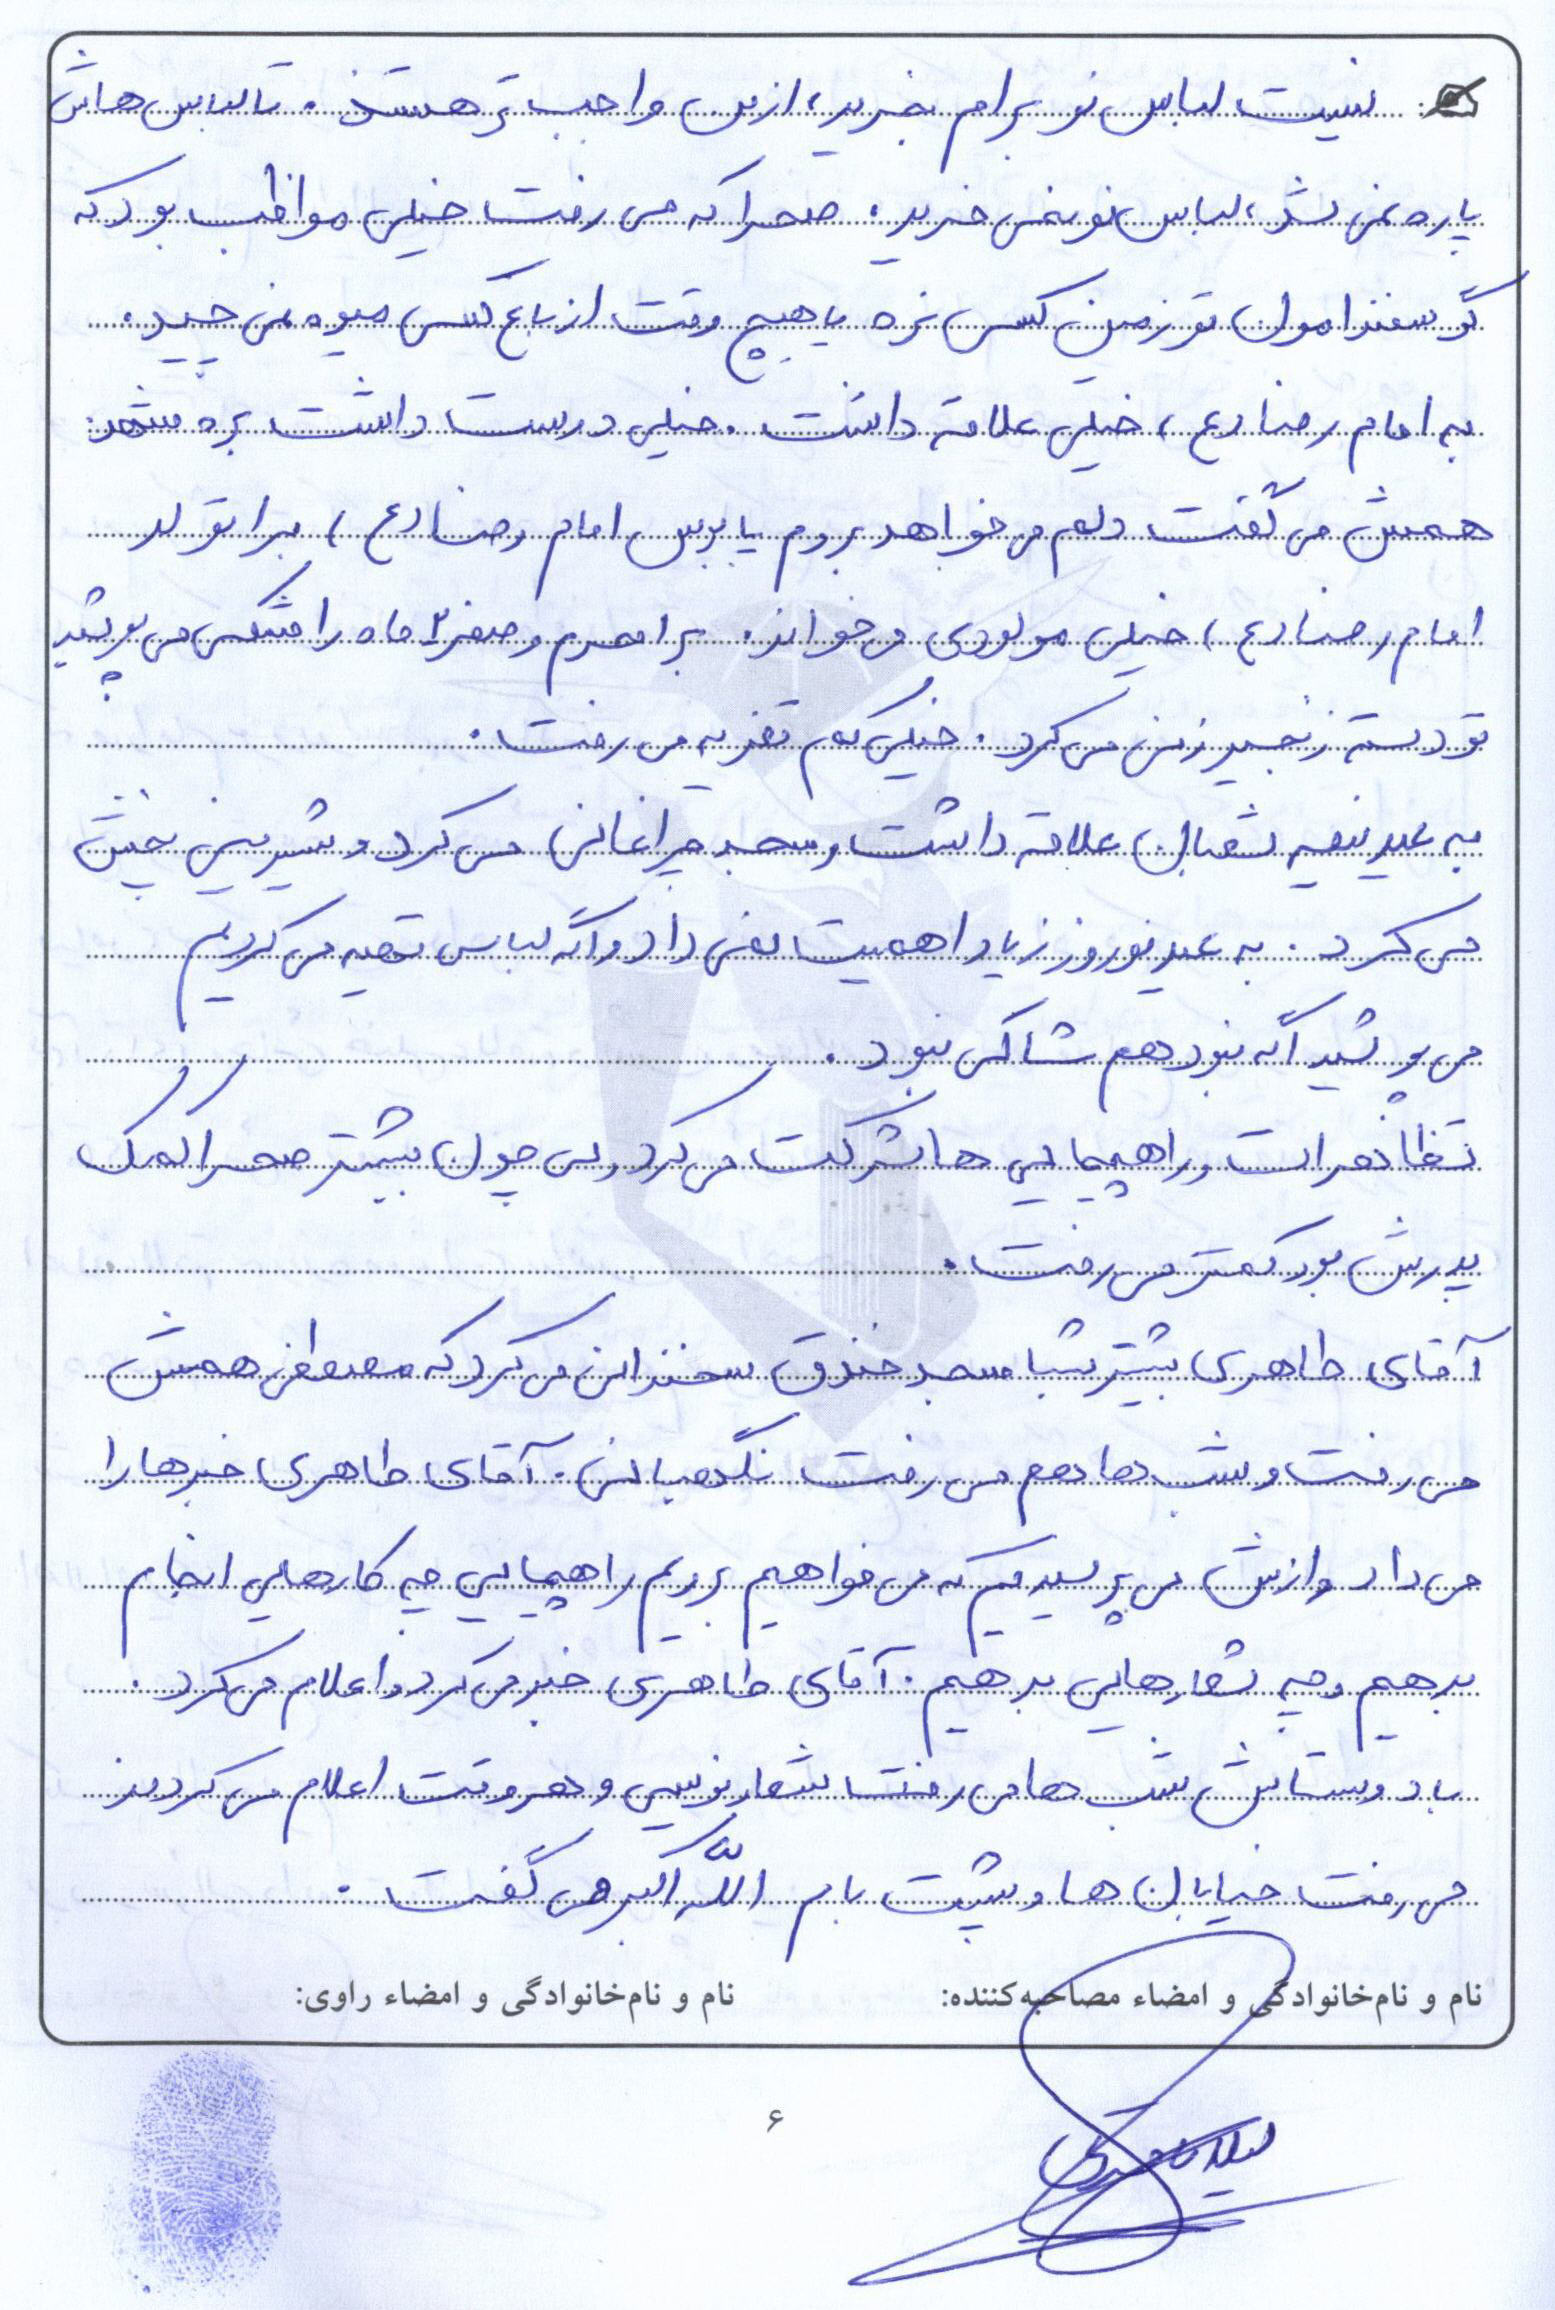 نیست لباس نو برام بخرید، ازین واجب تر هستند. تا لباس هاش
پاره نمی شد، لباس نو نمی خرید. صحرا که می رفت خیلی مواظب بود که
گوسفندامون تو زمین کسی نره یا هیچ وقت از باغ کسی میوه نمی چید.
به امام رضا (ع) خیلی علاقه داشت. خیلی دوست داشت بره مشهد
همش می گفت دلم می خواهد بروم پابوس امام رضا (ع) برا تولد
امام رضا (ع) خیلی مولودی می خواند. برا محرم و صفر ۲ ماه را مشکی می پوشید
تو دسته زنجیر زنی می کرد. خیلی کم تعزیه می رفت.
به عید نیمه شعبان علاقه داشت و مسجد چراغانی می کرد و شیرینی پخش
می کرد. به عید نوروز زیاد اهمیت نمی داد و اگه لباس تهیه می کردیم
می پوشید اگه نبود هم شاکی نبود.
تظاهرات و راهپیمایی ها شرکت می کرد ولی چون بیشتر صحرا کمک
پدرش بود کمتر می رفت.
آقای طاهری بیشتر شبا مسجد خندق سخنرانی می کرد که مصطفی همش
می رفت و شب ها هم می رفت نگهبانی. آقای طاهری خبرها را
می داد و ازش می پرسیدیم که می خواهیم برویم راهپیمایی چه کارهایی انجام
بدهیم و چه شعارهایی بدهیم. آقای طاهری خبر می کرد و اعلام می کرد.
با دوستاش شب ها می رفت شعار نویسی و هر وقت اعلام می کردند
می رفت خیابان ها و پشت بام الله اکبر می گفت.
نام و نام‌خانوادگی و امضاء مصاحبه‌کننده:
نام و نام‌خانوادگی و امضاء راوی:
۶